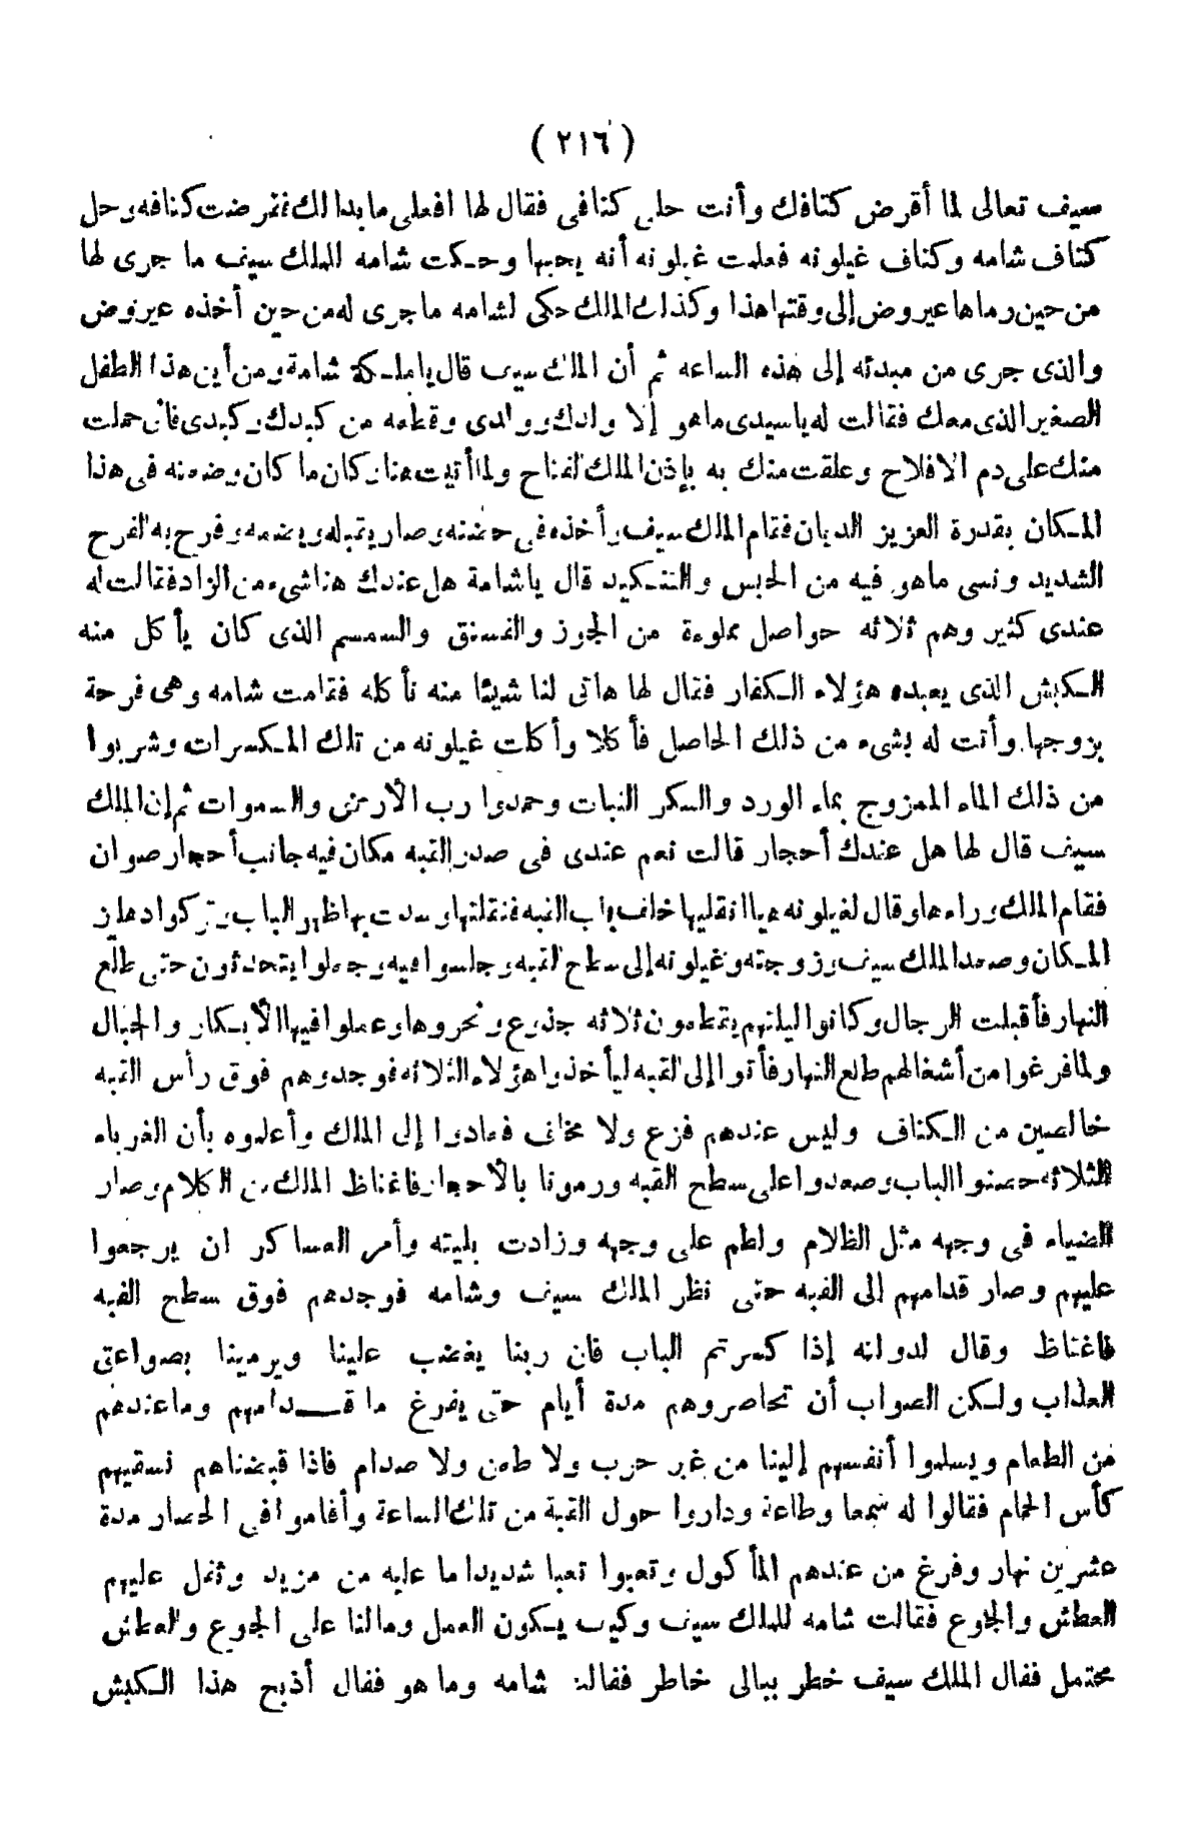 ( ٢١٦ )
سيف تعالى لما أقرض كتافك وأنت حلى كتافى فقال لها افعلى ما بدالك فقرضت كتافه وحل
كتاف شامه وكتاف غيلونه فعلمت غيلونه أنه يحبها وحكت شامه للملك سيف ما جرى لها
من حين رماها عيروض إلى وقتها هذا وكذلك الملك حكى لشامه ما جرى له من حين أخذه عيروض
والذى جرى من مبدئه إلى هذه الساعه ثم أن الملك سيف قال ياملكة شامة ومن أين هذا الطفل
الصغير الذى معك فقالت له ياسيدى ماهو إلا ولدك وولدى وقطعه من كبدك وكبدى فأنى حملت
منك على دم الافلاح وعلقت منك به بإذن الملك الفتاح ولما أتيت هنا وكان ما كان وضعته فى هذا
المكان بقدرة العزيز الديان فقام الملك سيف وأخذه فى حضنه وصار يقبله ويضمه وفرح به الفرح
الشديد ونسى ماهو فيه من الحبس والتنكيد قال ياشامة هل عندك هنا شىء من الزاد فقالت له
عندى كثير وهم ثلاثه حواصل مملوءة من الجوز والفستق والسمسم الذى كان يأكل منه
الكبش الذى يعبده هؤلاء الكفار فقال لها هاتى لنا شيئا منه نأكله فقامت شامه وهى فرحة
بزوجها وأتت له بشىء من ذلك الحاصل فأكلا وأكلت غيلونه من تلك المكسرات وشربوا
من ذلك الماء الممزوج بماء الورد والسكر النبات وحمدوا رب الأرض والسموات ثم إن الملك
سيف قال لها هل عندك أحجار قالت نعم عندى فى صدر القبه مكان فيه جانب أحجار صوان
فقام الملك وراءها وقال لغيلونه هيا انقليها خلف باب القبه فنقلتها وسدت بها ظهر الباب وتركوا دهليز
المكان وصعد الملك سيف وزوجته وغيلونه إلى سطح القبه وجلسوا فيه وجعلوا يتحدثون حتى طلع
النهار فأقبلت الرجال وكانوا ليلتهم يقطعون ثلاثه جذوع ونحروها وعملوا فيها الأبكار والحبال
ولما فرغوا من أشغالهم طلع النهار فأتوا إلى القبه ليأخذوا هؤلاء الثلاثه فوجدوهم فوق رأس القبه
خالصين من الكتاف وليس عندهم فزع ولا مخاف فعادوا إلى الملك وأعلموه بأن الغرباء
الثلاثه حصنوا الباب وصعدوا على سطح القبه ورمونا بالأحجار فاغتاظ الملك من الكلام وصار
الضياء فى وجهه مثل الظلام ولطم على وجهه وزادت بليته وأمر العساكر ان يرجعوا
عليهم وصار قدامهم الى القبه حتى نظر الملك سيف وشامه فوجدهم فوق سطح القبه
فاغتاظ وقال لدولته إذا كسرتم الباب فان ربنا يغضب علينا ويرمينا بصواعق
العذاب ولكن الصواب أن تحاصروهم مدة أيام حتى يفرغ ما قـــدامهم وماعندهم
من الطعام ويسلموا أنفسهم إلينا من غير حرب ولا طعن ولا صدام فاذا قبضناهم نسقيهم
كأس الحمام فقالوا له سمعا وطاعة وداروا حول القبة من تلك الساعة وأقاموا فى الحصار مدة
عشرين نهار وفرغ من عندهم المأكول وتعبوا تعبا شديدا ما عليه من مزيد وثقل عليهم
العطش والجوع فقالت شامه للملك سيف وكيف يكون العمل ومالنا على الجوع والعطش
محتمل فقال الملك سيف خطر ببالى خاطر فقالت شامه وما هو فقال أذبح هذا الكبش